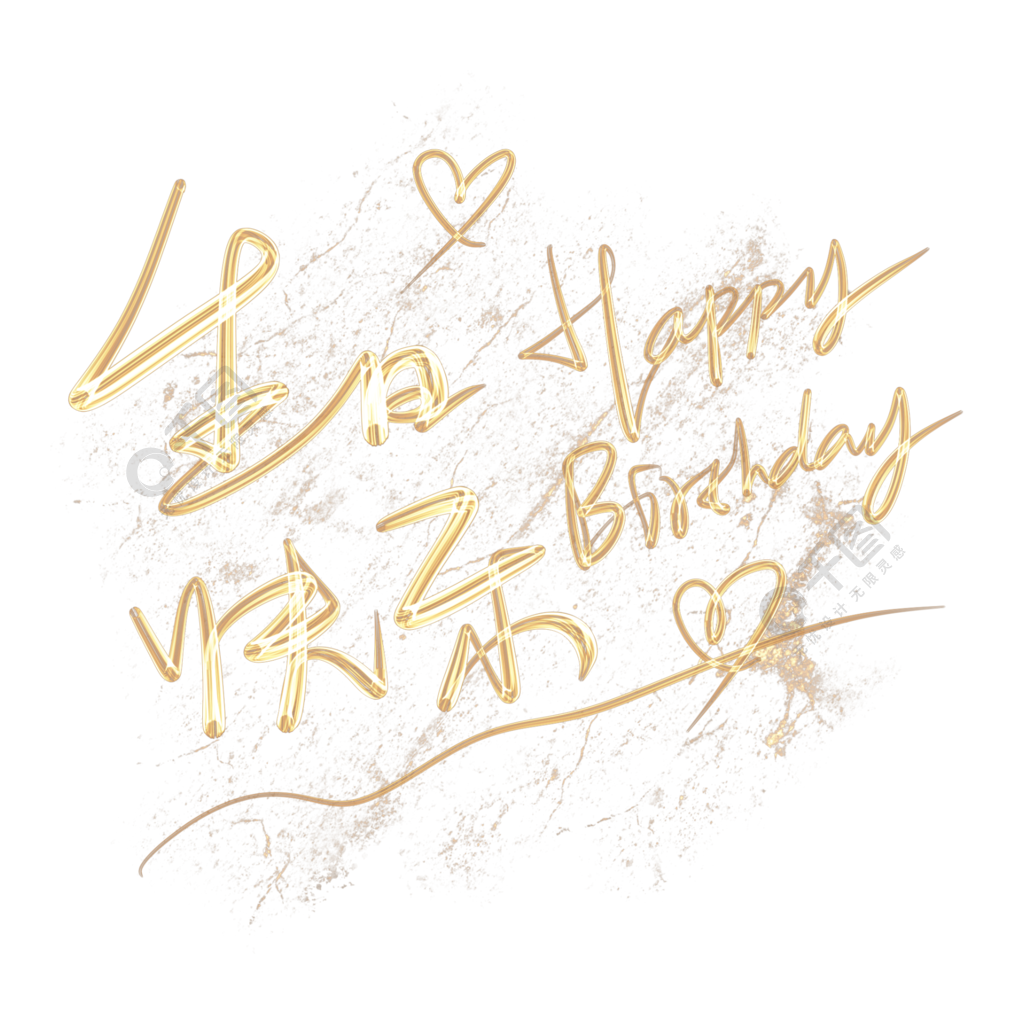 生日
快乐
Happy
Birthday
千图
千图
优设计 无限灵感